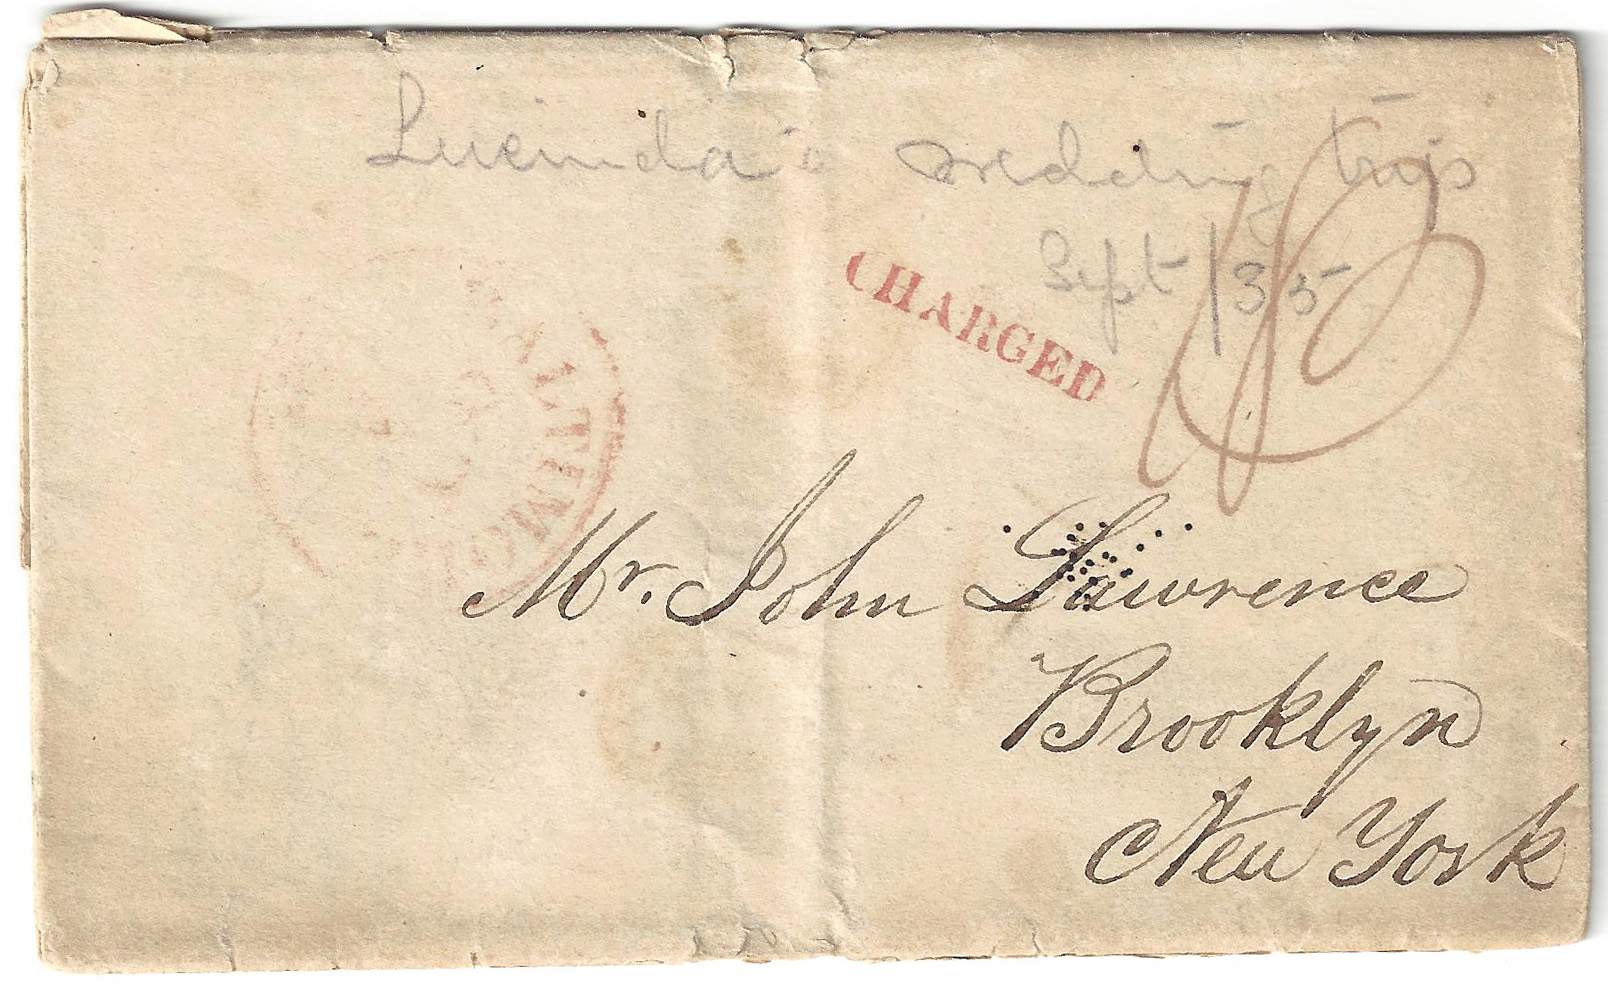 Lucinda's wedding trip
Sept /35
CHARGED
Mr. John Lawrence
Brooklyn
New York